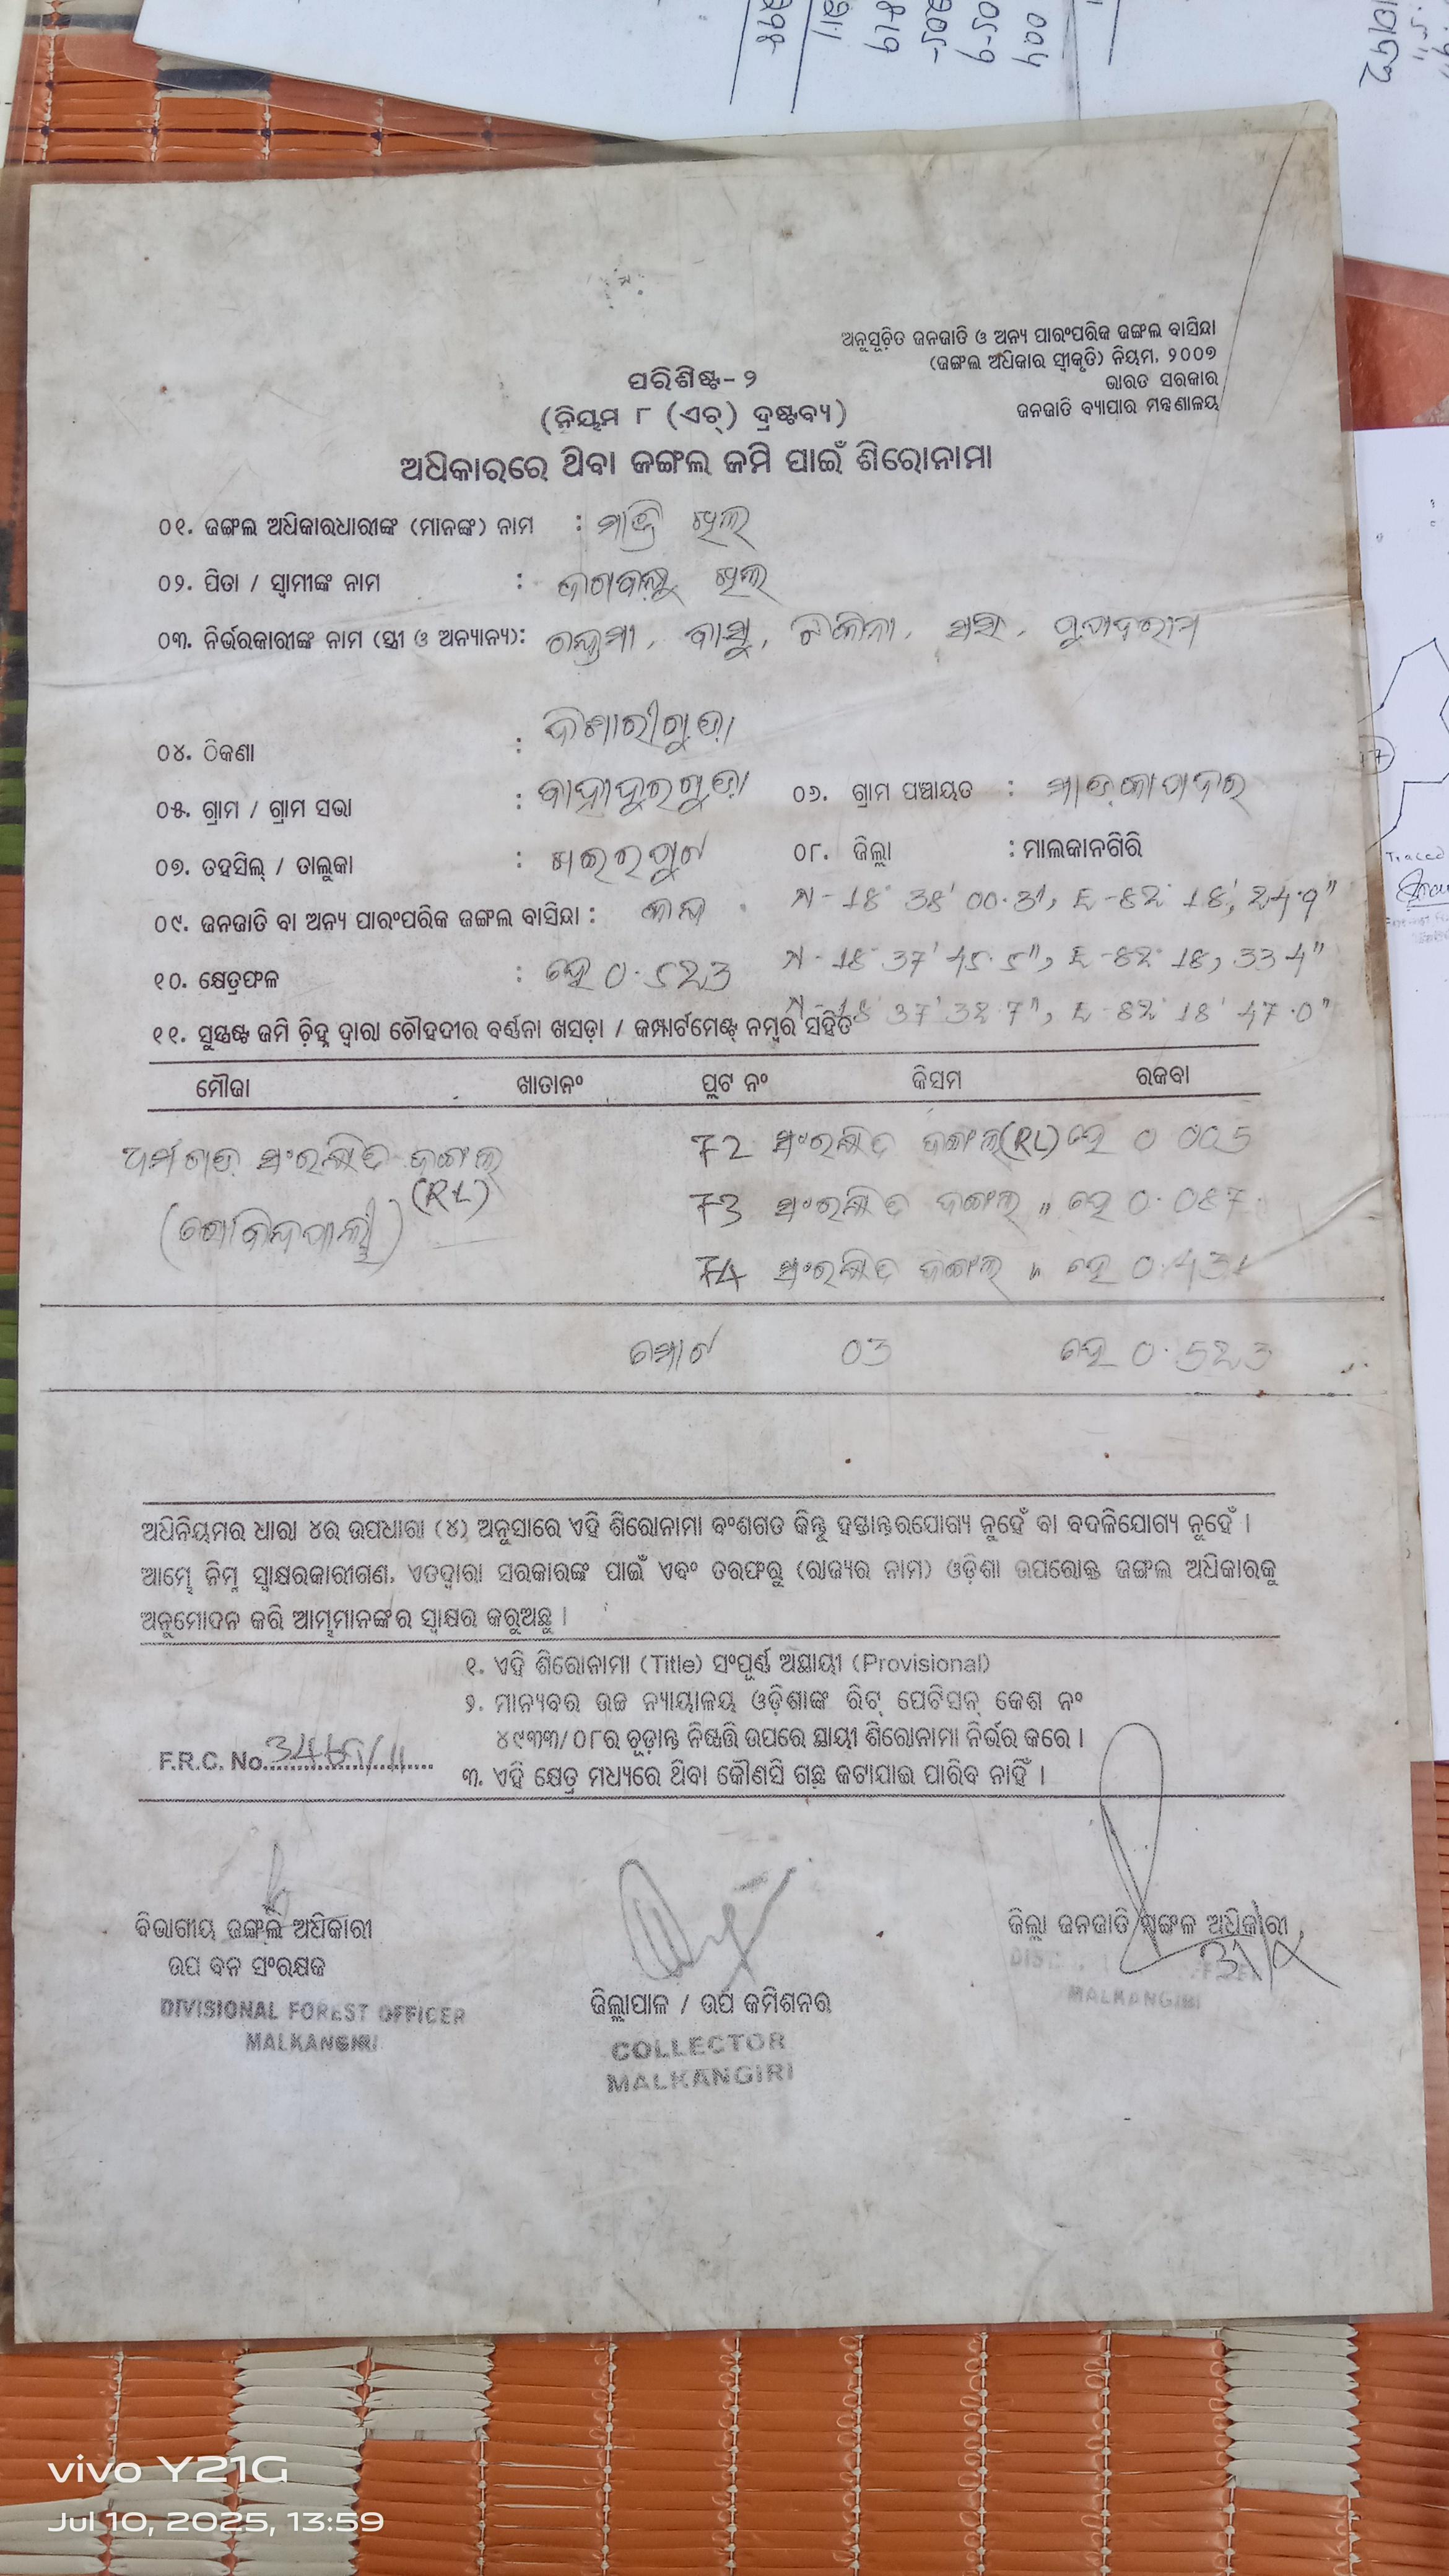 ଅନୁସୂଚିତ ଜନଜାତି ଓ ଅନ୍ୟ ପାରଂପରିକ ଜଙ୍ଗଲ ବାସିନ୍ଦା
(ଜଙ୍ଗଲ ଅଧିକାର ସ୍ୱୀକୃତି) ନିୟମ, ୨୦୦୭
ଭାରତ ସରକାର
ଜନଜାତି ବ୍ୟାପାର ମନ୍ତ୍ରଣାଳୟ
ପରିଶିଷ୍ଟ-୨
(ନିୟମ ୮ (ଏଚ୍) ଦ୍ରଷ୍ଟବ୍ୟ)
ଅଧିକାରରେ ଥିବା ଜଙ୍ଗଲ ଜମି ପାଇଁ ଶିରୋନାମା
୦୧. ଜଙ୍ଗଲ ଅଧିକାରଧାରୀଙ୍କ (ମାନଙ୍କ) ନାମ :
୦୨. ପିତା / ସ୍ୱାମୀଙ୍କ ନାମ : ଜଗବନ୍ଧୁ
୦୩. ନିର୍ଭରକାରୀଙ୍କ ନାମ (ସ୍ତ୍ରୀ ଓ ଅନ୍ୟାନ୍ୟ):
୦୪. ଠିକଣା :
୦୫. ଗ୍ରାମ / ଗ୍ରାମ ସଭା : ୦୬. ଗ୍ରାମ ପଞ୍ଚାୟତ :
୦୭. ତହସିଲ୍ / ତାଲୁକା : ଖଇରପୁଟ ୦୮. ଜିଲ୍ଲା : ମାଲକାନଗିରି
୦୯. ଜନଜାତି ବା ଅନ୍ୟ ପାରଂପରିକ ଜଙ୍ଗଲ ବାସିନ୍ଦା : N-18° 38' 00.3", E-82° 18', 24.9"
୧୦. କ୍ଷେତ୍ରଫଳ : ହେ 0.523 N-18° 37' 45.5", E-82° 18, 33 4"
N-18° 37' 32.7", E-82° 18' 47.0"
୧୧. ସୁସ୍ପଷ୍ଟ ଜମି ଚିହ୍ନ ଦ୍ୱାରା ଚୌହଦୀର ବର୍ଣ୍ଣନା ଖସଡ଼ା / କମ୍ପାର୍ଟମେଣ୍ଟ୍ ନମ୍ବର ସହିତ
ମୌଜା ଖାତାନଂ ପ୍ଲଟ ନଂ କିସମ ରକବା
ସଂରକ୍ଷିତ ଜଙ୍ଗଲ 72 ସଂରକ୍ଷିତ ଜଙ୍ଗଲ(RL) ହେ 0 005
(RL)
(ଗୋବିନ୍ଦପାଲ୍ଲୀ) 73 ସଂରକ୍ଷିତ ଜଙ୍ଗଲ " ହେ 0.087
74 ସଂରକ୍ଷିତ ଜଙ୍ଗଲ " ହେ 0.431
ମୋଟ 03 ହେ 0.523
ଅଧିନିୟମର ଧାରା ୪ର ଉପଧାରା (୪) ଅନୁସାରେ ଏହି ଶିରୋନାମା ବଂଶଗତ କିନ୍ତୁ ହସ୍ତାନ୍ତରଯୋଗ୍ୟ ନୁହେଁ ବା ବଦଳିଯୋଗ୍ୟ ନୁହେଁ ।
ଆମ୍ଭେ ନିମ୍ନ ସ୍ୱାକ୍ଷରକାରୀଗଣ, ଏତଦ୍ୱାରା ସରକାରଙ୍କ ପାଇଁ ଏବଂ ତରଫରୁ (ରାଜ୍ୟର ନାମ) ଓଡ଼ିଶା ଉପରୋକ୍ତ ଜଙ୍ଗଲ ଅଧିକାରକୁ
ଅନୁମୋଦନ କରି ଆମ୍ଭମାନଙ୍କର ସ୍ୱାକ୍ଷର କରୁଅଛୁ ।
୧. ଏହି ଶିରୋନାମା (Title) ସଂପୂର୍ଣ୍ଣ ଅସ୍ଥାୟୀ (Provisional)
୨. ମାନ୍ୟବର ଉଚ୍ଚ ନ୍ୟାୟାଳୟ ଓଡ଼ିଶାଙ୍କ ରିଟ୍ ପେଟିସନ୍ କେଶ ନଂ
୪୯୩୩/୦୮ର ଚୂଡ଼ାନ୍ତ ନିଷ୍ପତ୍ତି ଉପରେ ସ୍ଥାୟୀ ଶିରୋନାମା ନିର୍ଭର କରେ ।
F.R.C. No.
୩. ଏହି କ୍ଷେତ୍ର ମଧ୍ୟରେ ଥିବା କୌଣସି ଗଛ କଟାଯାଇ ପାରିବ ନାହିଁ ।
ବିଭାଗୀୟ ଜଙ୍ଗଲ ଅଧିକାରୀ
ଉପ ବନ ସଂରକ୍ଷକ
DIVISIONAL FOREST OFFICER
MALKANGIRI
ଜିଲ୍ଲାପାଳ / ଉପ କମିଶନର
COLLECTOR
MALKANGIRI
ଜିଲ୍ଲା ଜନଜାତି ମଙ୍ଗଳ ଅଧିକାରୀ
MALKANGIRI
Traced
vivo Y21G
Jul 10, 2025, 13:59